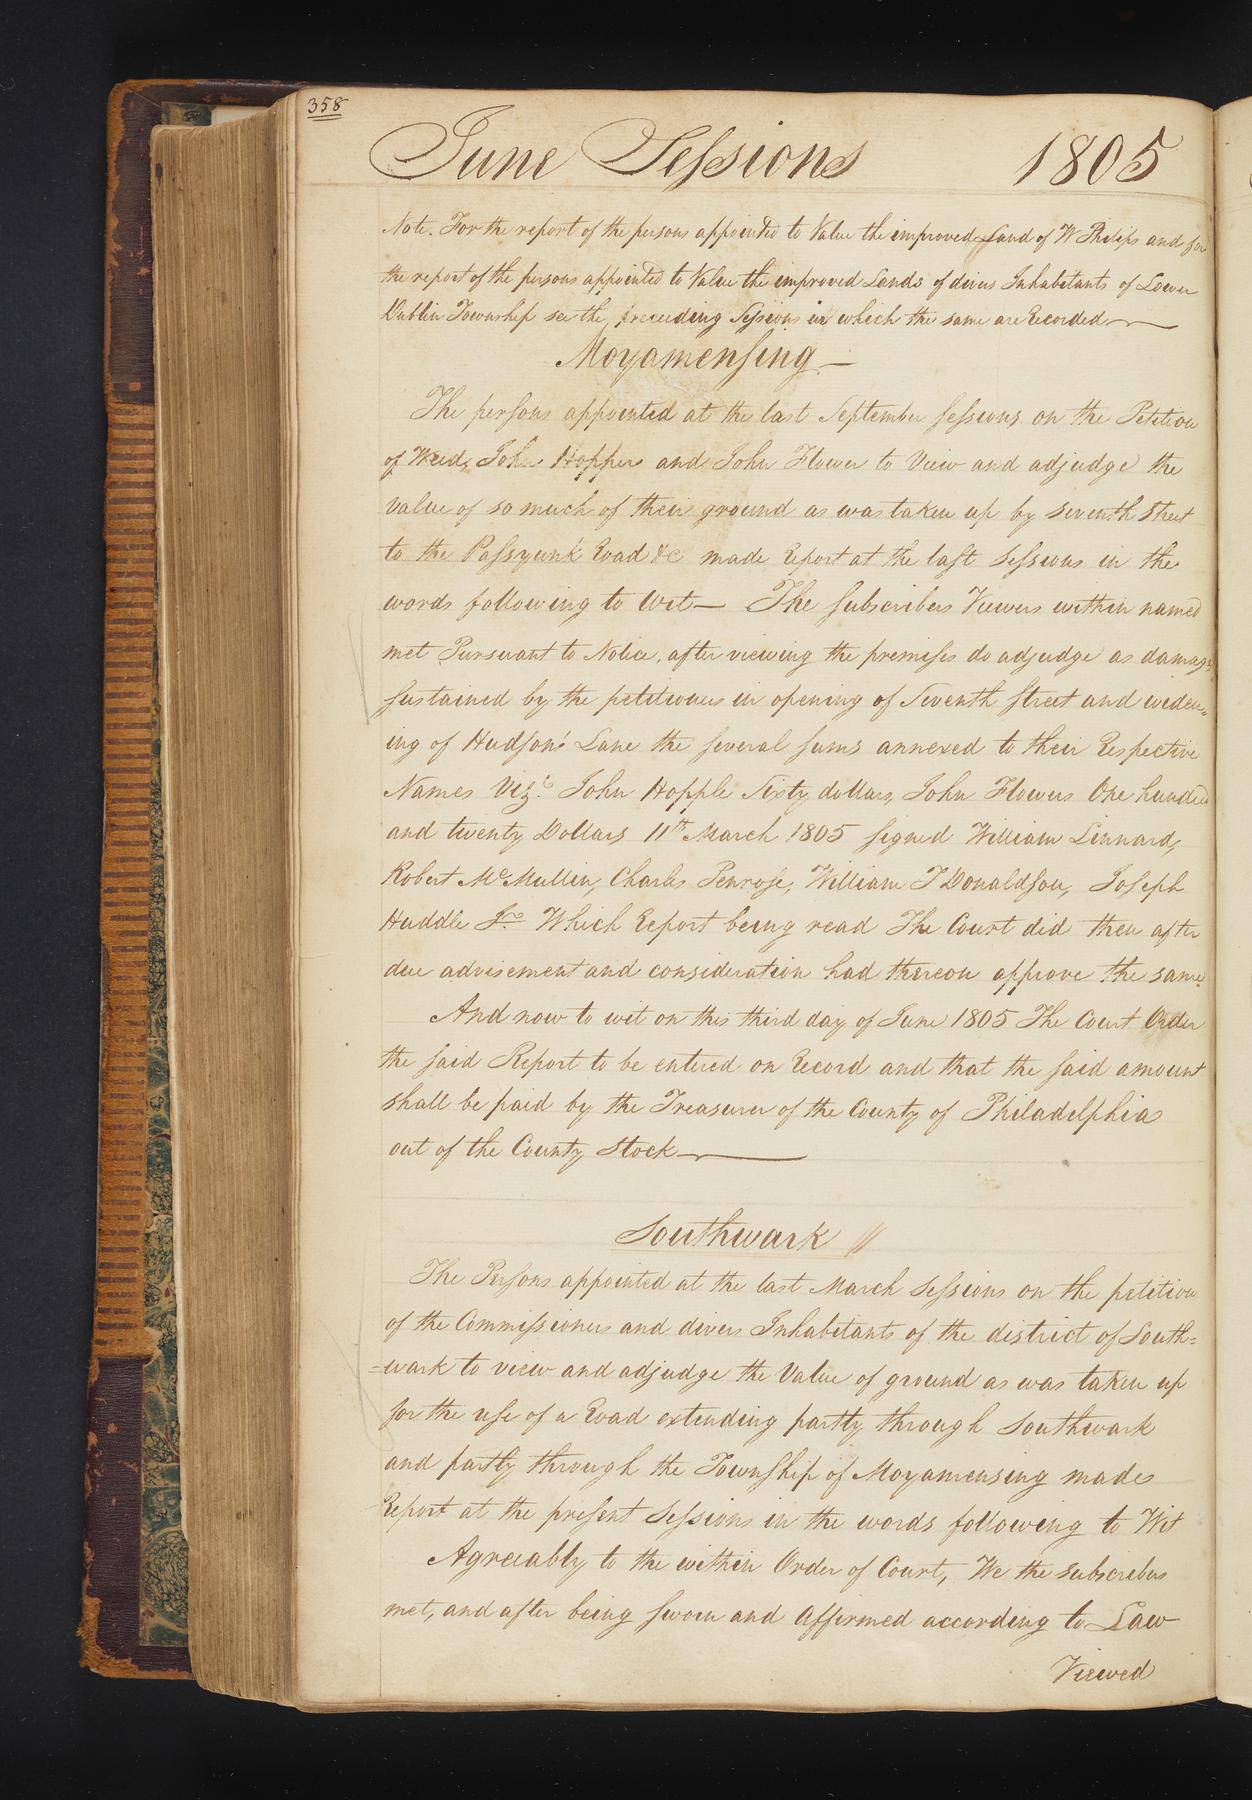 358
June Sessions 1805
Note. For the report of the persons appointed to Value the improved Land of W Philips and for
the report of the persons appointed to Value the improved Lands of divers Inhabitants of Lower
Dublin Township see the preceeding Sessions in which the same are Recorded
Moyamensing —
The persons appointed at the last September sessions on the Petition
of John Hopper and John Flower to View and adjudge the
value of so much of their ground as was taken up by seventh Street
to the Passyunk Road &c made Report at the last Sessions in the
words following to Wit — The subscribers Viewers within named
met Pursuant to Notice, after viewing the premises do adjudge as damages
sustained by the petitioners in opening of Seventh street and widen=
ing of Hudson's Lane the several sums annexed to their Respective
Names Vizt. John Hopple Sixty dollars, John Flowers One hundred
and twenty Dollars 11th March 1805 signed William Linnard,
Robert McMullin, Charles Penrose, William T Donaldson, Joseph
Huddle Jr. Which Report being read The Court did then after
due advisement and consideration had thereon approve the same.
And now to wit on this third day of June 1805 The Court Order
the said Report to be entered on Record and that the said amount
shall be paid by the Treasurer of the County of Philadelphia
out of the County Stock
Southwark //
The Persons appointed at the last March Sessions on the petition
of the Commissioners and divers Inhabitants of the district of South=
=wark to view and adjudge the Value of ground as was taken up
for the use of a Road extending partly through Southwark
and partly through the Township of Moyamensing made
Report at the present Sessions in the words following to Wit
Agreeably to the within Order of Court, We the subscribers
met, and after being sworn and Affirmed according to Law
Viewed